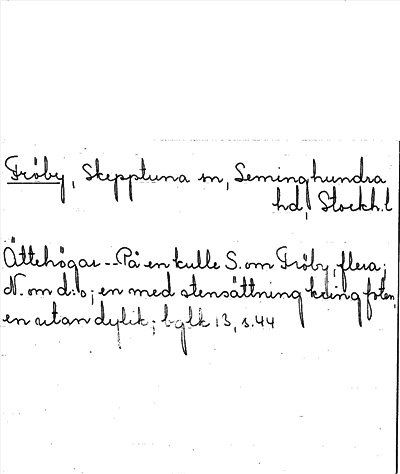 Fröby, Skepptuna sn, Seminghundra
hd, Stockh.l
Ättehögar -- På en kulle S. om Fröby, flera;
N. om d:o; en med stensättning kring foten,
en utan dylik; bglk 13, s.44